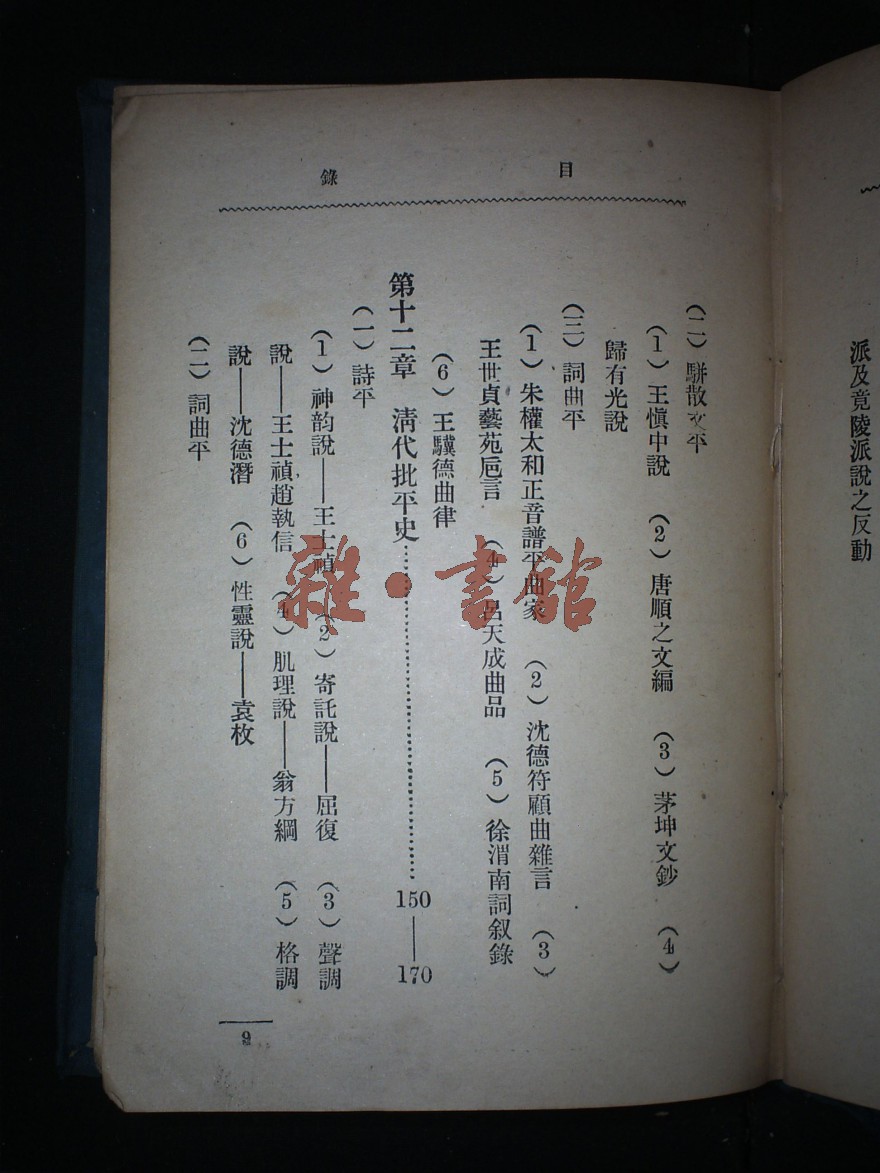 派及竟陵派說之反動
目錄
（二）駢散文平
（1）王愼中說　（2）唐順之文編　（3）茅坤文鈔　（4）
歸有光說
（三）詞曲平
（1）朱權太和正音譜平曲家　（2）沈德符顧曲雜言　（3）
王世貞藝苑巵言　（4）呂天成曲品　（5）徐渭南詞叙錄
（6）王驥德曲律
第十二章　淸代批平史……150——170
（一）詩平
（1）神韵說——王士禎　（2）寄託說——屈復　（3）聲調
說——王士禎趙執信　（4）肌理說——翁方綱　（5）格調
說——沈德潛　（6）性靈說——袁枚
（二）詞曲平
9
雜·書館